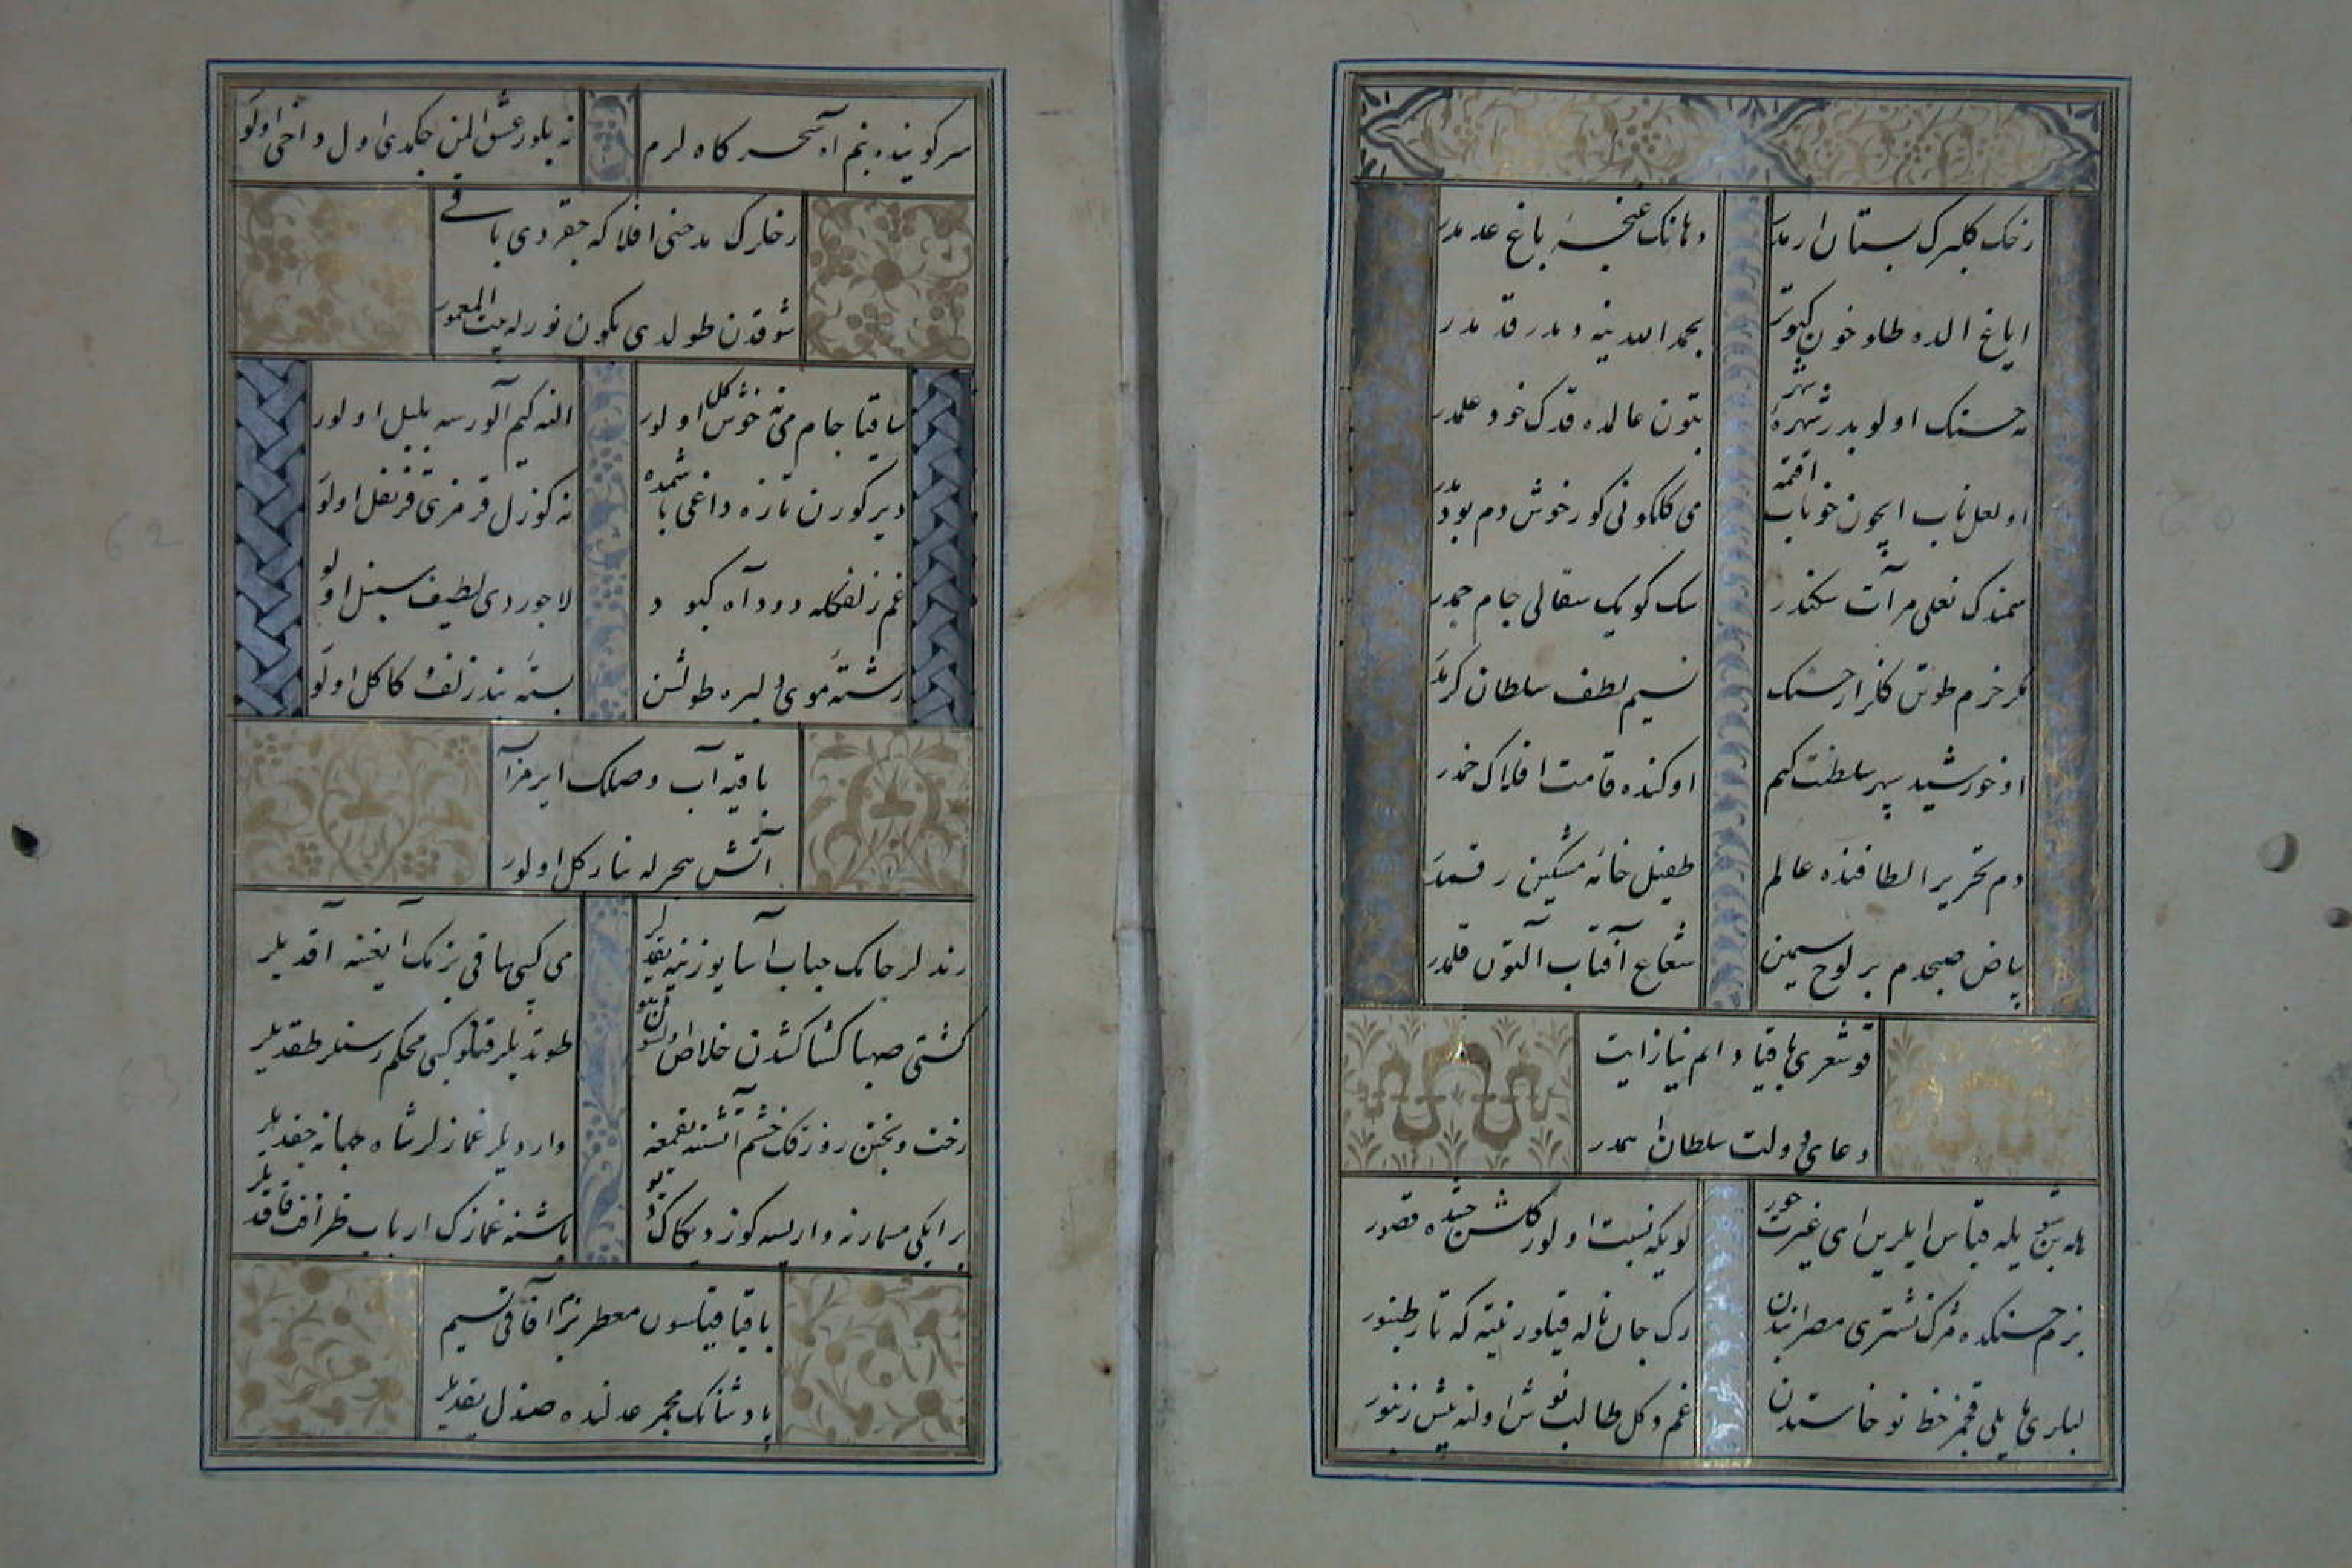 رخک کلبرک بستان ارمدر دهانک غنچهٔ باغ عدمدر
ایاغ الده طلو خون کبوتر بحمد الله ینه دمدر قدمدر
نه حسنک اولوبدر شهرهٔ شهر بتون عالمده قدک خود علمدر
او لعل ناب ایچون خوناب اقتمه می کلکونی کور خوش دم بودمدر
سمندک نعلی مرآت سکندر سک کویک سفالی جام جمدر
مکر خرم طوتن کلزار حسنک نسیم لطف سلطان کرمدر
او خورشید سپهر سلطنت کیم اوکنده قامت افلاک خمدر
دم تحریر الطافنده عالم طفیل خامهٔ مشکین رقمدر
بیاض صبحدم بر لوح سیمین شعاع آفتاب آلتون قلمدر
قو شعری باقیا دایم نیاز ایت
دعای دولت سلطان اهمدر
بیله قیاس ایلرین ای غیرت حور کویکه نسبت اولور کلشن جنتده قصور
بزم حسنکده رک جان ناله قیلور نیته که تار طنبور
لبلری خط نو خاستدن غم دکل طالب نوش اولنه نیش زنبور
سر کوینده بنم آه سحرکاه لرم نه بلور عشق المن چکمدی اول داخی اولور
رخلرک مدحنی افلاکه چقردی باقی
شوقدن طولدی بکون نورله بیت المعمور
ساقیا جام می نه خوش کل اولور النه کیم آلورسه بلبل اولور
دیر کورن تازه داغی باشمده نه کوزل قرمزی قرنفل اولور
غم زلفکله دود آه کبود لاجوردی لطیف سنبل اولور
رشتهٔ موی دلبره طولشن بستهٔ بند زلف و کاکل اولور
باقیه آب وصلک ایرمزسه
آتش هجرله یانار کل اولور
رندلر جامک حباب آسا یوزینه بقدیلر می کبی ساقی بزمک ایغنه آقدیلر
کشتی صهبا کشاکشدن خلاص طوتدیلر محکم رسنلر طقدیلر
رخت و بختن روزکک خشم آتشنه یقمغه واردیلر غمازلر شاه جهانه چقدیلر
بر ایکی مسمارنه واریسه کوز دیکاک باشنه غمازک ارباب ظرافت قاقدیلر
باقیا قیلسون معطر بزم آفاقی نسیم
پادشاهک مجمر عدلنده صندل یقدیلر